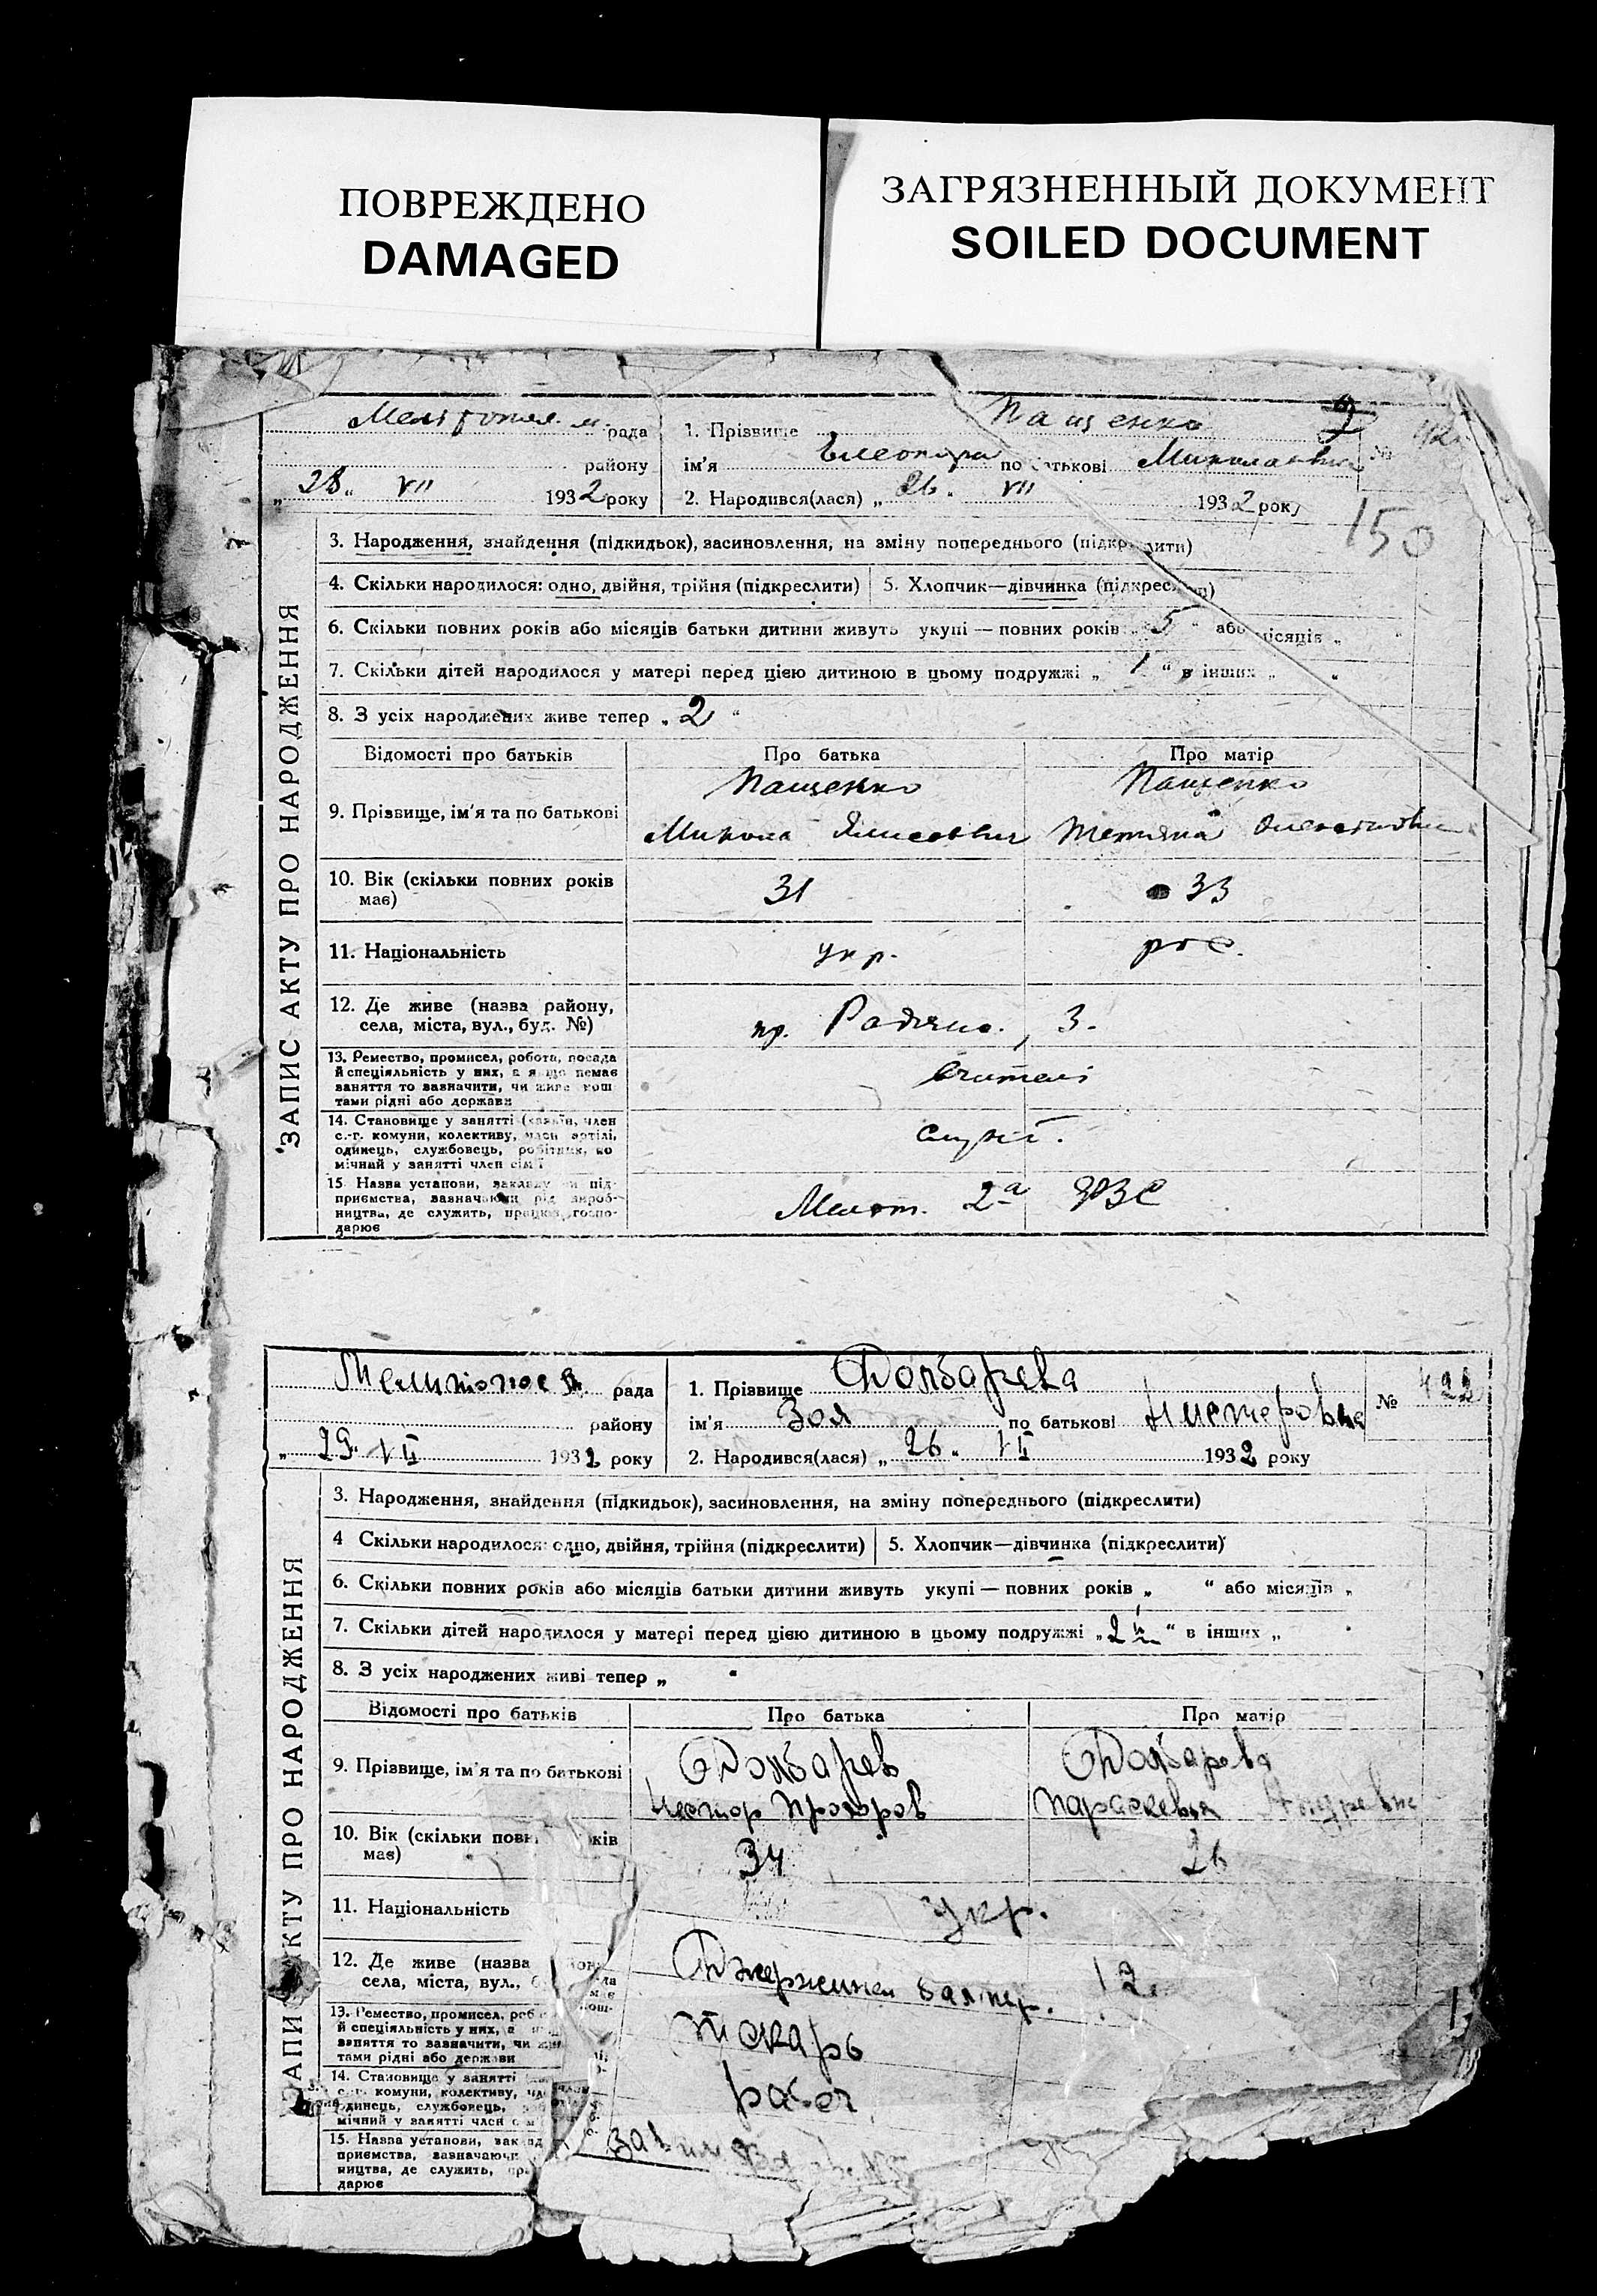 ПОВРЕЖДЕНО
DAMAGED
ЗАГРЯЗНЕННЫЙ ДОКУМЕНТ
SOILED DOCUMENT
рада
району
„ 28 “ VII 1932 року
1. Прізвище Пащенко
ім'я по батькові
2. Народився(лася) „ 26 “ VII 1932 року
№
150
ЗАПИС АКТУ ПРО НАРОДЖЕННЯ
3. Народження, знайдення (підкидьок), засиновлення, на зміну попереднього (підкреслити)
4. Скільки народилося: одно, двійня, трійня (підкреслити)
5. Хлопчик—дівчинка (підкреслити)
6. Скільки повних років або місяців батьки дитини живуть укупі — повних років „ 5 “ або місяців „ “
7. Скільки дітей народилося у матері перед цією дитиною в цьому подружжі „ 1 “ в інших „ “
8. З усіх народжених живе тепер „ 2 “
Відомості про батьків
Про батька
Про матір
9. Прізвище, ім'я та по батькові
Пащенко
Микола
Пащенко
Тетяна
10. Вік (скільки повних років
має)
31
33
11. Національність
укр.
рос.
12. Де живе (назва району,
села, міста, вул., буд. №)
пр. Радянс., 3.
13. Ремество, промисел, робота, посада
й спеціяльність у них, а якщо немає
заняття то зазначити, чи живе кош
тами рідні або держави
вчителі
14. Становище у занятті (хазяїн, член
с.-г. комуни, колективу, член артілі,
одинець, службовець, робітник, по
мічний у занятті член сім'ї
15. Назва установи, закладу чи під-
приємства, зазначаючи рід вироб-
ництва, де служить, працює, госпо-
дарює
Меліт. 2а ФЗС
рада
району
„ 29 “ VII 1932 року
1. Прізвище
ім'я Зоя по батькові Нистеровна
2. Народився(лася) „ 26 “ VII 1932 року
№ 422
ЗАПИС АКТУ ПРО НАРОДЖЕННЯ
3. Народження, знайдення (підкидьок), засиновлення, на зміну попереднього (підкреслити)
4 Скільки народилося: одно, двійня, трійня (підкреслити)
5. Хлопчик—дівчинка (підкреслити)
6. Скільки повних років або місяців батьки дитини живуть укупі — повних років „ “ або місяців „
7. Скільки дітей народилося у матері перед цією дитиною в цьому подружжі „ 2 “ в інших „
8. З усіх народжених живі тепер „ “
Відомості про батьків
Про батька
Про матір
9. Прізвище, ім'я та по батькові
Нестор Прохоров
Параскевья
10. Вік (скільки повних років
має)
34
26
11. Національність
укр.
12. Де живе (назва
села, міста, вул.,
12
13. Ремество, промисел, роб
й спеціяльність у них, а
заняття то зазначити, чи жи
тами рідні або держави
токарь
14. Становище у занятті
с.-г. комуни, колективу, чл
одинець, службовець,
мічний у занятті член сім
рабоч
15. Назва установи, заклад
приємства, зазначаючи
ництва, де служить, пра
дарює